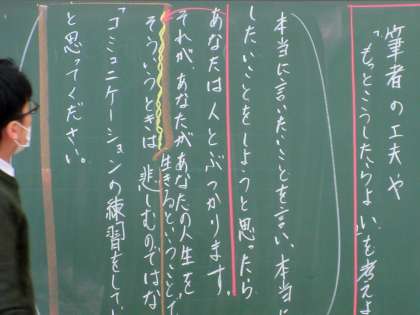 筆者の工夫や
「もっとこうしたらよい」を考えよ
本当に言いたいことを言い、本当に
したいことをしようと思ったら
あなたは人とぶつかります。
それがあなたがあなたの人生を
生きるということで
そういうときは、悲しむのではな
「コミュニケーションの練習をしてい
と思ってください。